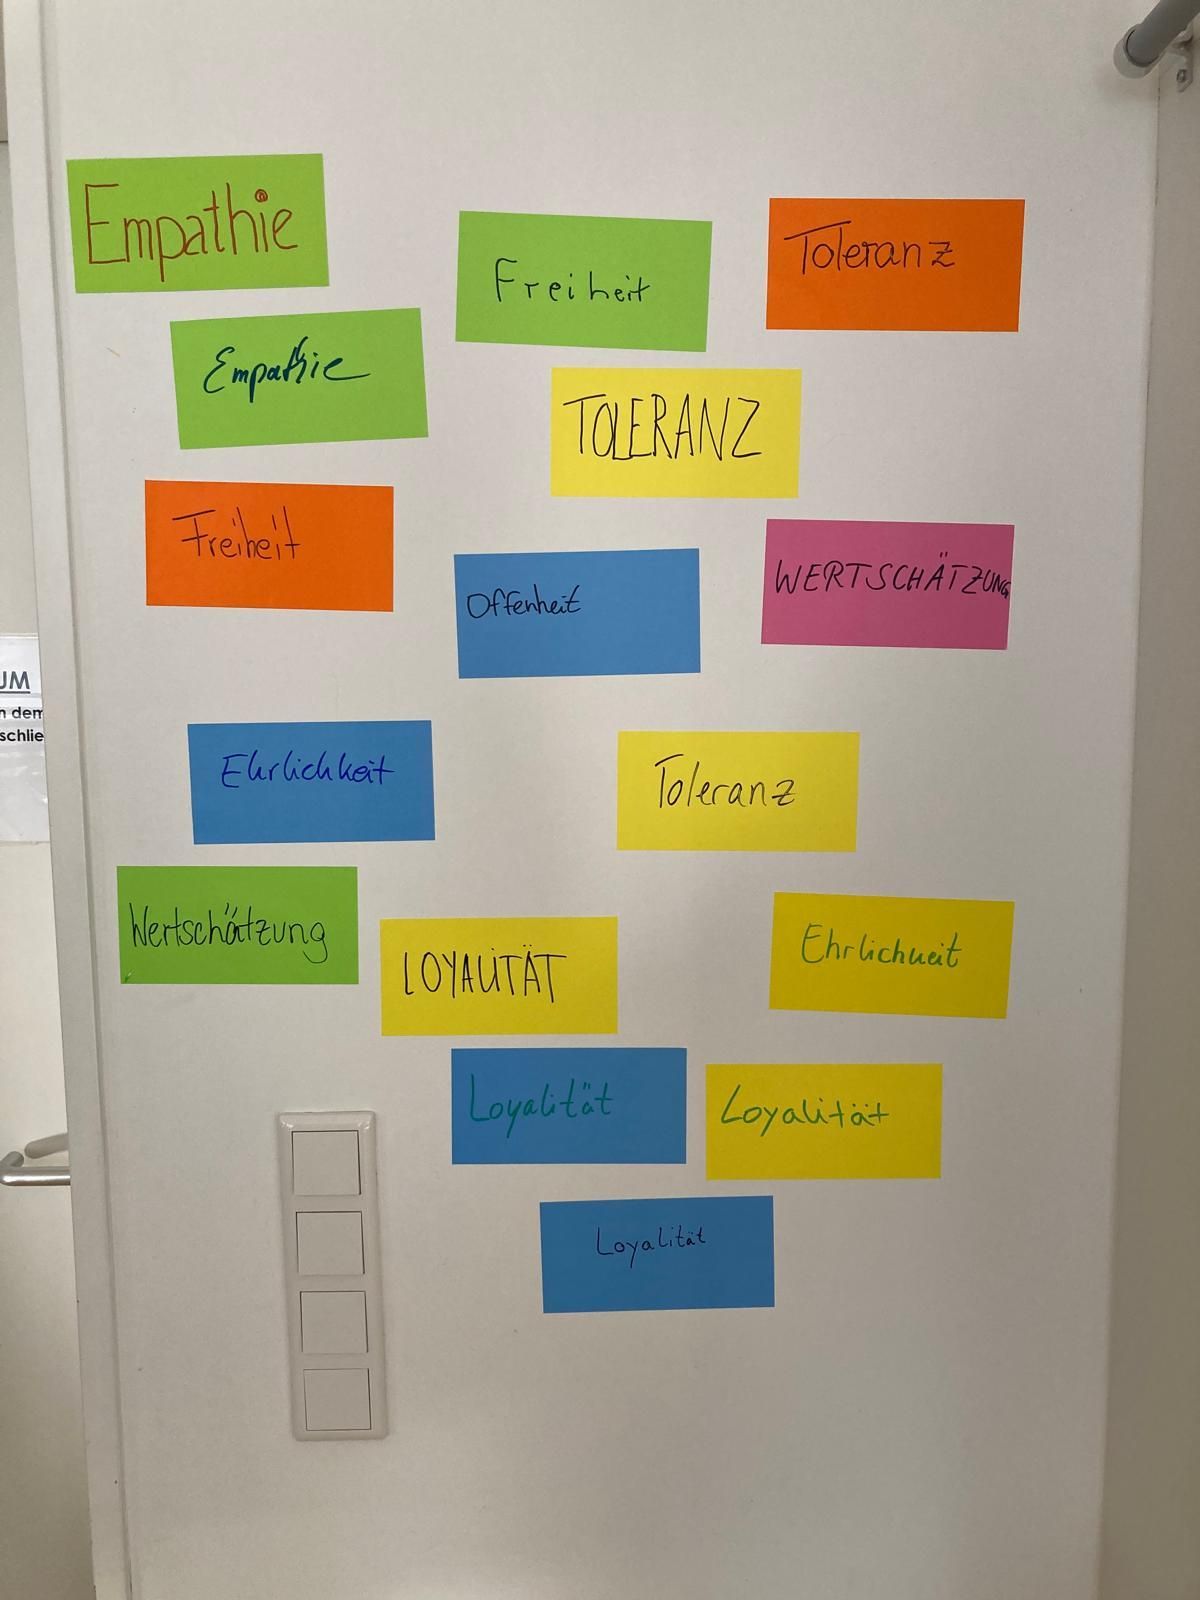 Empathie
Freiheit
Toleranz
Empathie
TOLERANZ
Freiheit
Offenheit
WERTSCHÄTZUNG
UM
n dem
schlie
Ehrlichkeit
Toleranz
Wertschätzung
LOYALITÄT
Ehrlichkeit
Loyalität
Loyalität
Loyalität